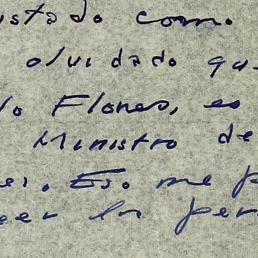 ustado como
olvidado qu
lo Flores, es
Ministro de
es. Eso me p
eer la per